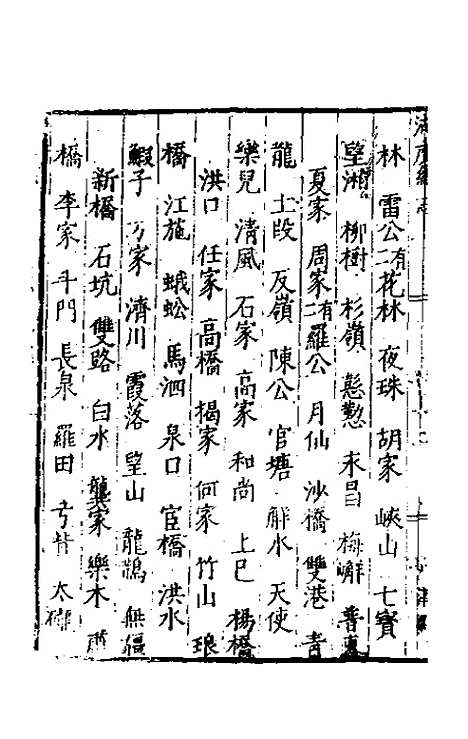 林 雷公二有 花林 夜珠 胡家 峽山 七寶
望湘 柳樹 杉嶺 懸懃 末昌 梅嶰 普惠
夏家 周家二有 羅公 月仙 沙橋 雙港 青
龍 土段 反嶺 陳公 官塘 觧水 天使
樂兒 清風 石家 高家 和尚 上巳 楊橋
洪口 任家 高橋 楊家 何家 竹山 琅
橋 江施 蛾蚣 馬泗 泉口 官橋 洪水
鰕子 家 濟川 霞落 望山 龍鵲 無疆
新橋 石坑 雙路 白水 龔家 樂木
橋 李家 斗門 長泉 羅田 太